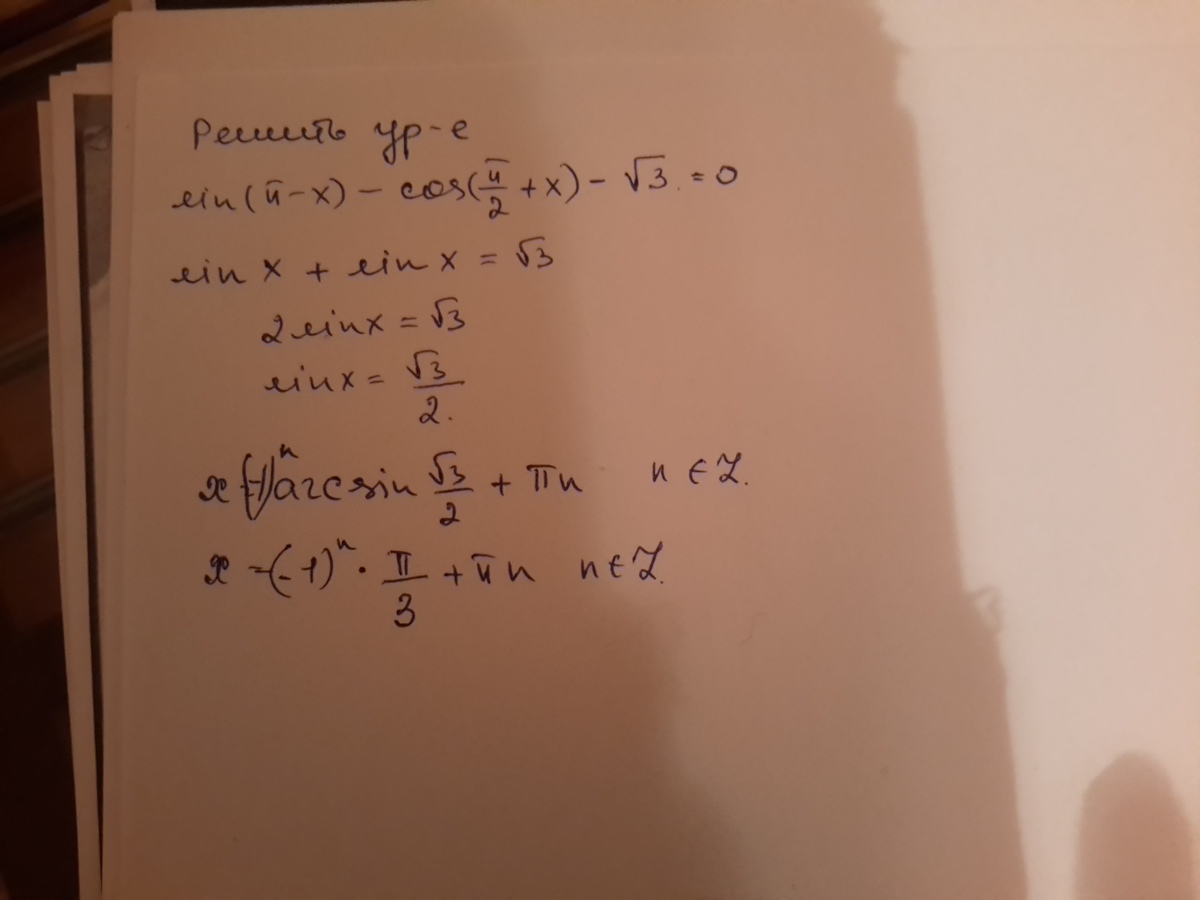 Решить ур-е
sin(π-x) - cos(π/2 + x) - √3 = 0
sin x + sin x = √3
2 sin x = √3
sin x = √3/2.
x = (-1)ⁿ arcsin √3/2 + πn n ∈ Z.
x = (-1)ⁿ · π/3 + πn n ∈ Z.